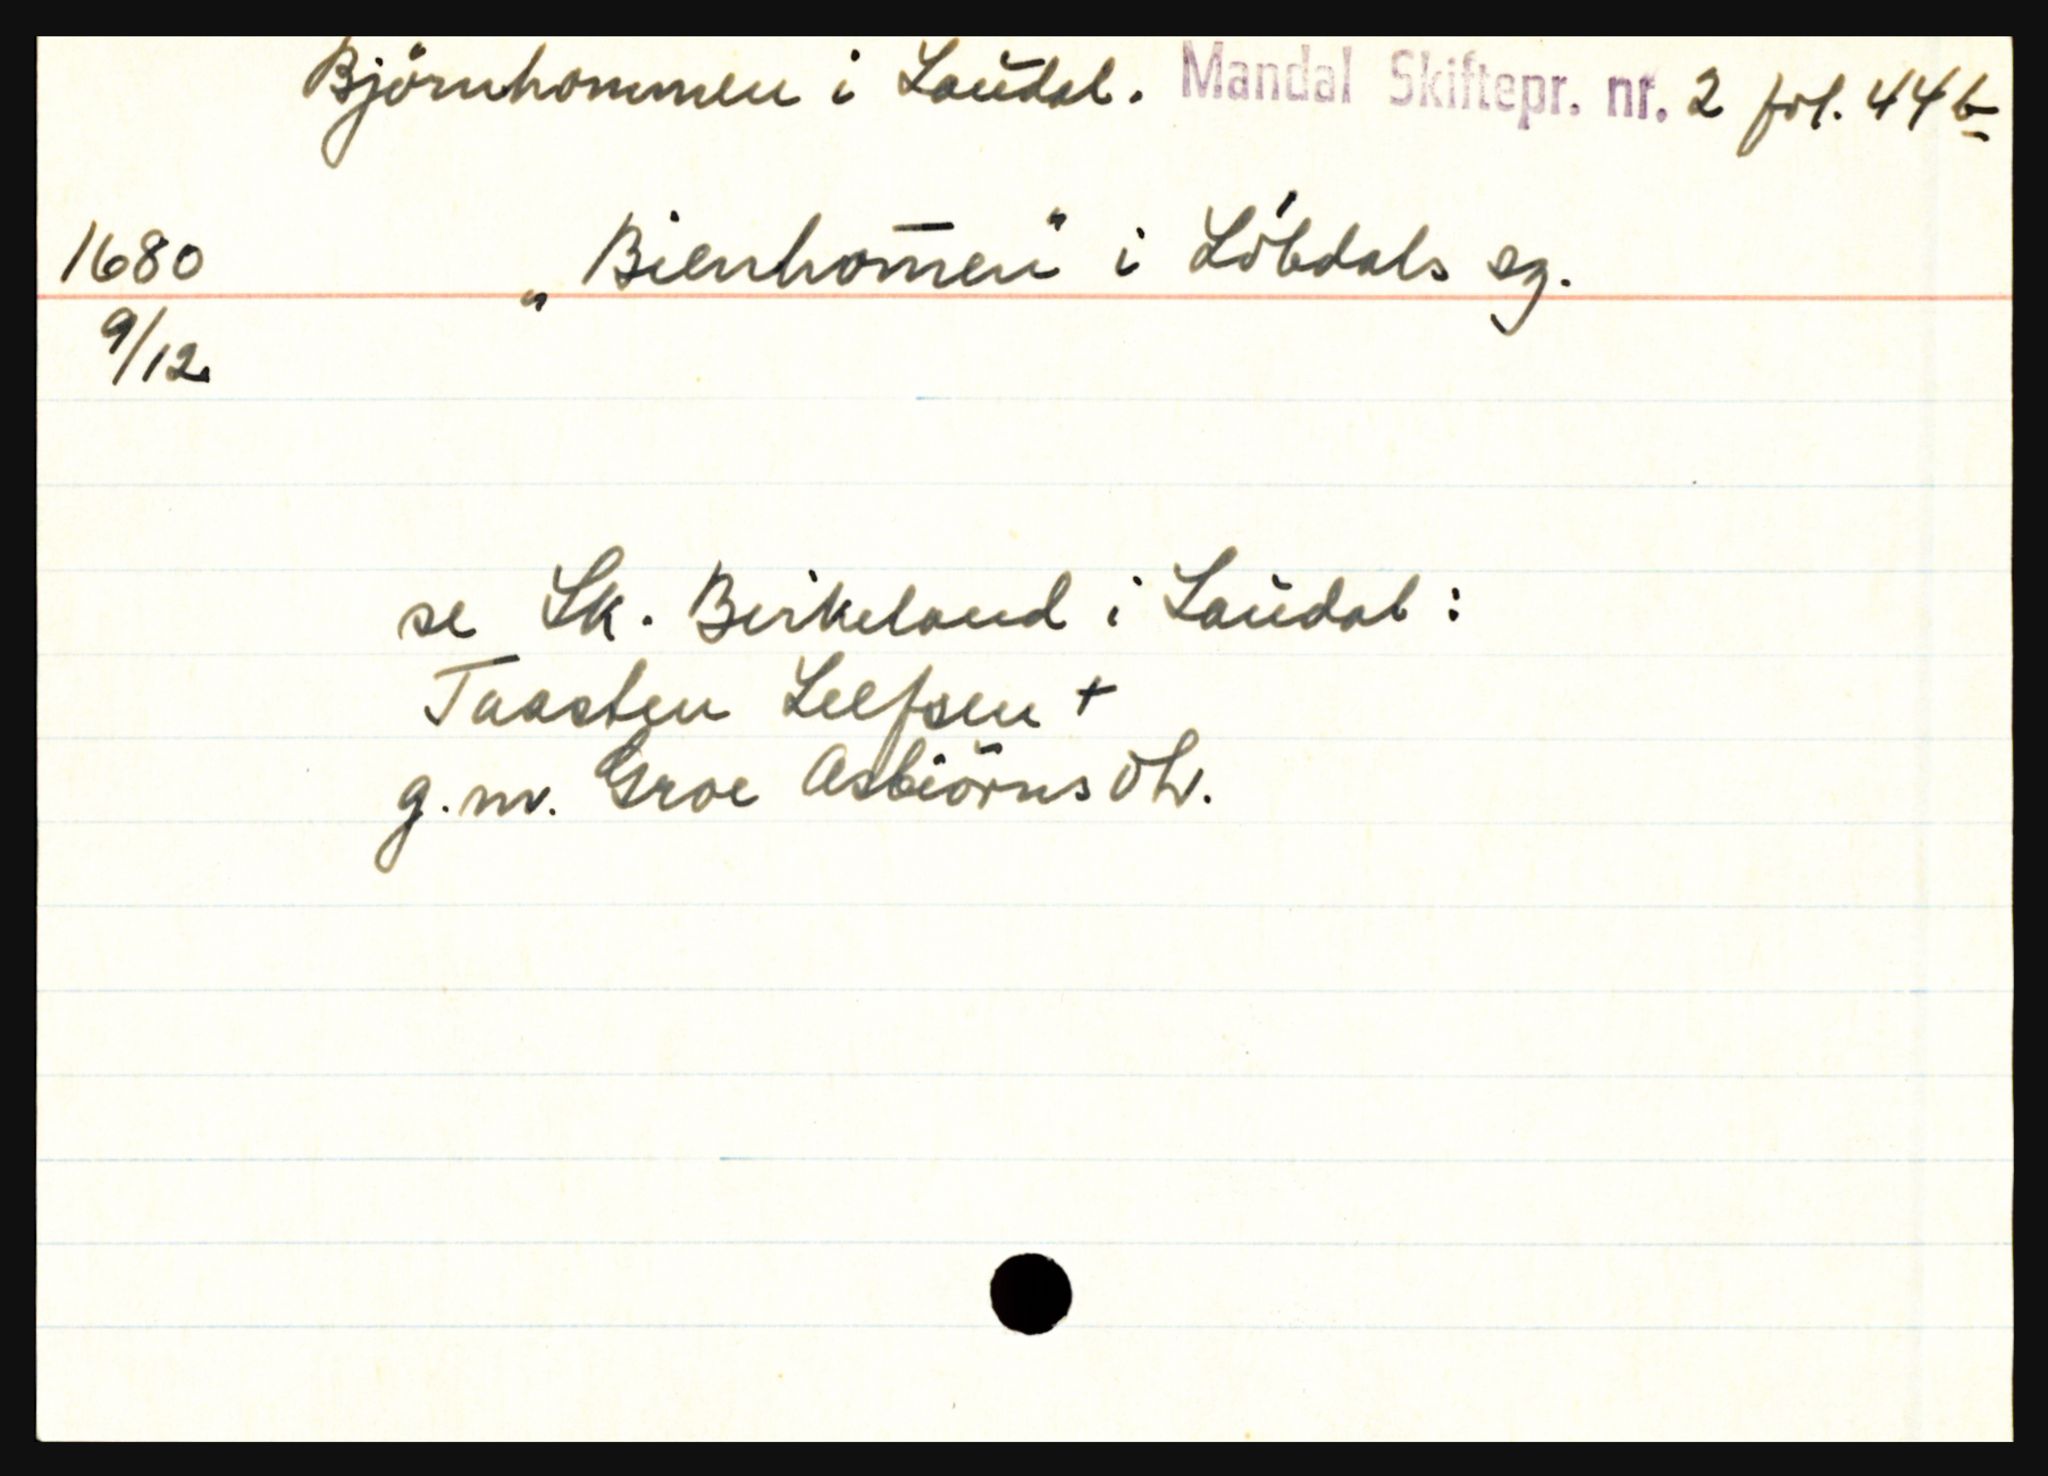 Bjørnhommen i Laudal. Mandal Skiftepr. nr. 2 fol. 44b
1680 „Bienhom̅en" i Lóbdals sg.
9/12
se Sk. Birkeland i Laudal:
Taasten Leefsen +
g.m. Groe Asbiörns Dtr.